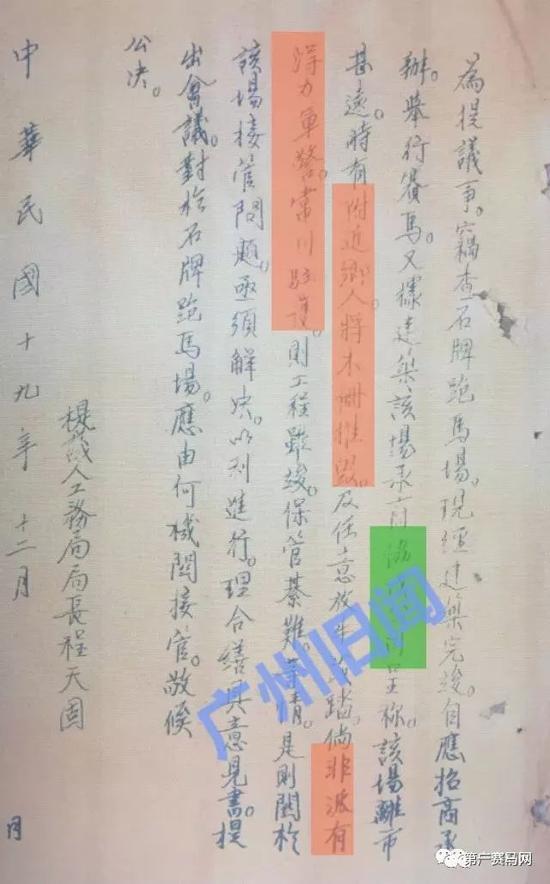 為提議事。竊查石牌跑馬場。現經建築完竣。自應招商承
辦。舉行賽馬。又據建築該場承商協 呈称。該場離市
甚遠。時有附近鄉人將木柵推毀。及任意放牛 踏。倘非派有
得力軍警常川駐 。則工程雖竣。保管綦難。等情。是則關於
該場接管問題。亟須解决。以利進行。理合繕具意見書。提
出會議。對於石牌跑馬場。應由何機關接管。敬候
公决。
提議人工務局局長程天固
中華民國十九年十二月 月
广州旧闻
第一赛马网